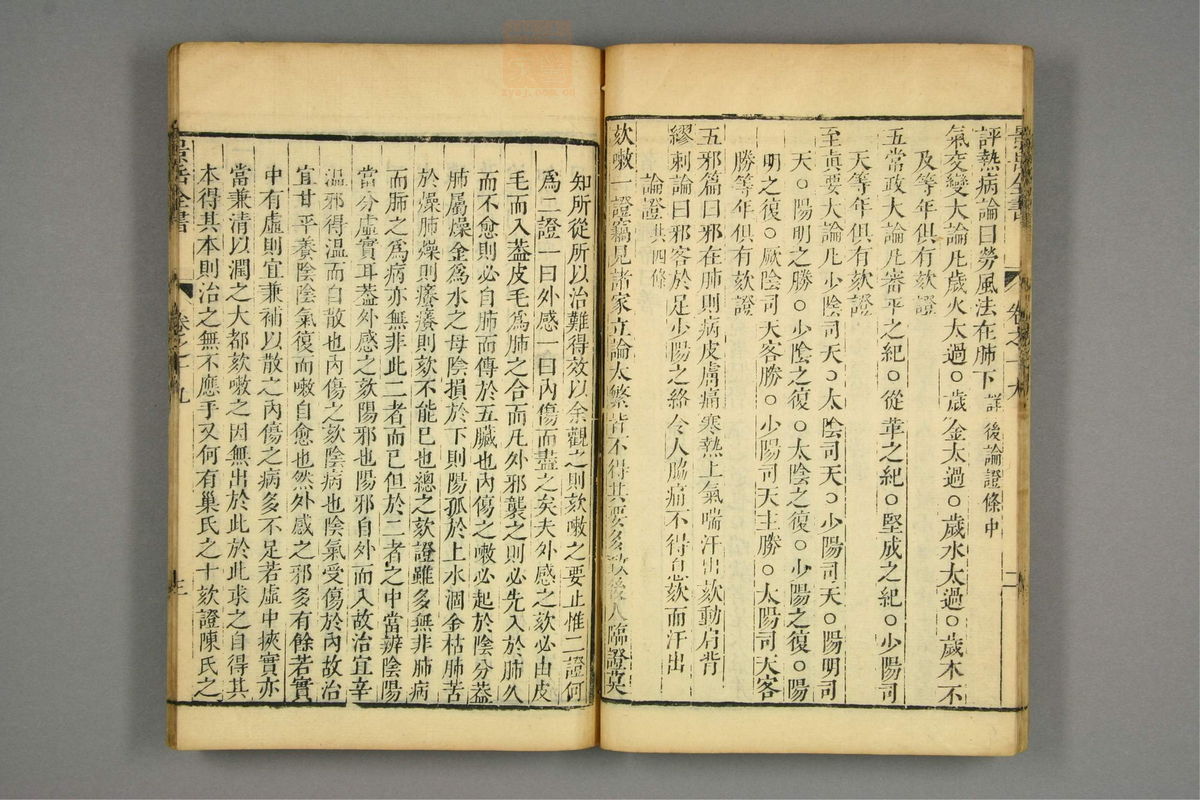 景岳全書 卷之十九 二
評熱病論曰勞風法在肺下 詳後論證條中
氣交變大論凡歲火太過○歲金太過○歲水太過○歲木不
及等年俱有欬證
五常政大論凡審平之紀○從革之紀○堅成之紀○少陽司
天等年俱有欬證
至眞要大論凡少陰司天○太陰司天○少陽司天○陽明司
天○陽明之勝○少陰之復○太陰之復○少陽之復○陽
明之復○厥陰司天客勝○少陽司天主勝○太陽司天客
勝等年俱有欬證
五邪篇曰邪在肺則病皮膚痛寒熱上氣喘汗出欬動肩背
繆刺論曰邪客於足少陽之絡令人脇痛不得息欬而汗出
論證共四條
欬嗽一證竊見諸家立論太繁皆不得其要多致後人臨證莫
知所從所以治難得效以余觀之則欬嗽之要止惟二證何
爲二證一曰外感一曰內傷而盡之矣夫外感之欬必由皮
毛而入蓋皮毛爲肺之合而凡外邪襲之則必先入於肺久
而不愈則必自肺而傳於五臟也內傷之嗽必起於陰分蓋
肺屬燥金爲水之母陰損於下則陽孤於上水涸金枯肺苦
於燥肺燥則癢癢則欬不能已也總之欬證雖多無非肺病
而肺之爲病亦無非此二者而已但於二者之中當辨陰陽
當分虛實耳蓋外感之欬陽邪也陽邪自外而入故治宜辛
溫邪得溫而自散也內傷之欬陰病也陰氣受傷於內故治
宜甘平養陰陰氣復而嗽自愈也然外感之邪多有餘若實
中有虛則宜兼補以散之內傷之病多不足若虛中挾實亦
當兼清以潤之大都欬嗽之因無出於此於此求之自得其
本得其本則治之無不應手又何有巢氏之十欬證陳氏之
景岳全書 卷之十九 三